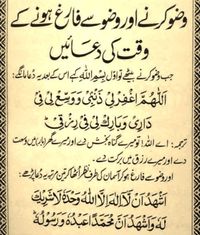 وضو کرنے اور وضو سے فارغ ہونے کے
وقت کی دعائیں
جب وضو کرنے بیٹھے تو اول بسم اللہ کہے اس کے بعد یہ دعا مانگے:
اَللّٰهُمَّ اغْفِرْ لِیْ ذَنْۢبِیْ وَوَسِّعْ لِیْ فِیْ
دَارِیْ وَبَارِكْ لِیْ فِیْ رِزْقِیْ
ترجمہ: اے اللہ! تو میرے گناہ بخش دے اور میرے گھر میں وسعت
دے اور میرے رزق میں برکت دے۔
اور وضو سے فارغ ہو کر آسمان کی طرف نظر اٹھا کر تین مرتبہ یہ دعا پڑھے:
اَشْهَدُ اَنْ لَّا اِلٰهَ اِلَّا اللّٰهُ وَحْدَهٗ لَا شَرِیْكَ
لَهٗ وَاَشْهَدُ اَنَّ مُحَمَّدًا عَبْدُهٗ وَرَسُوْلُهٗ